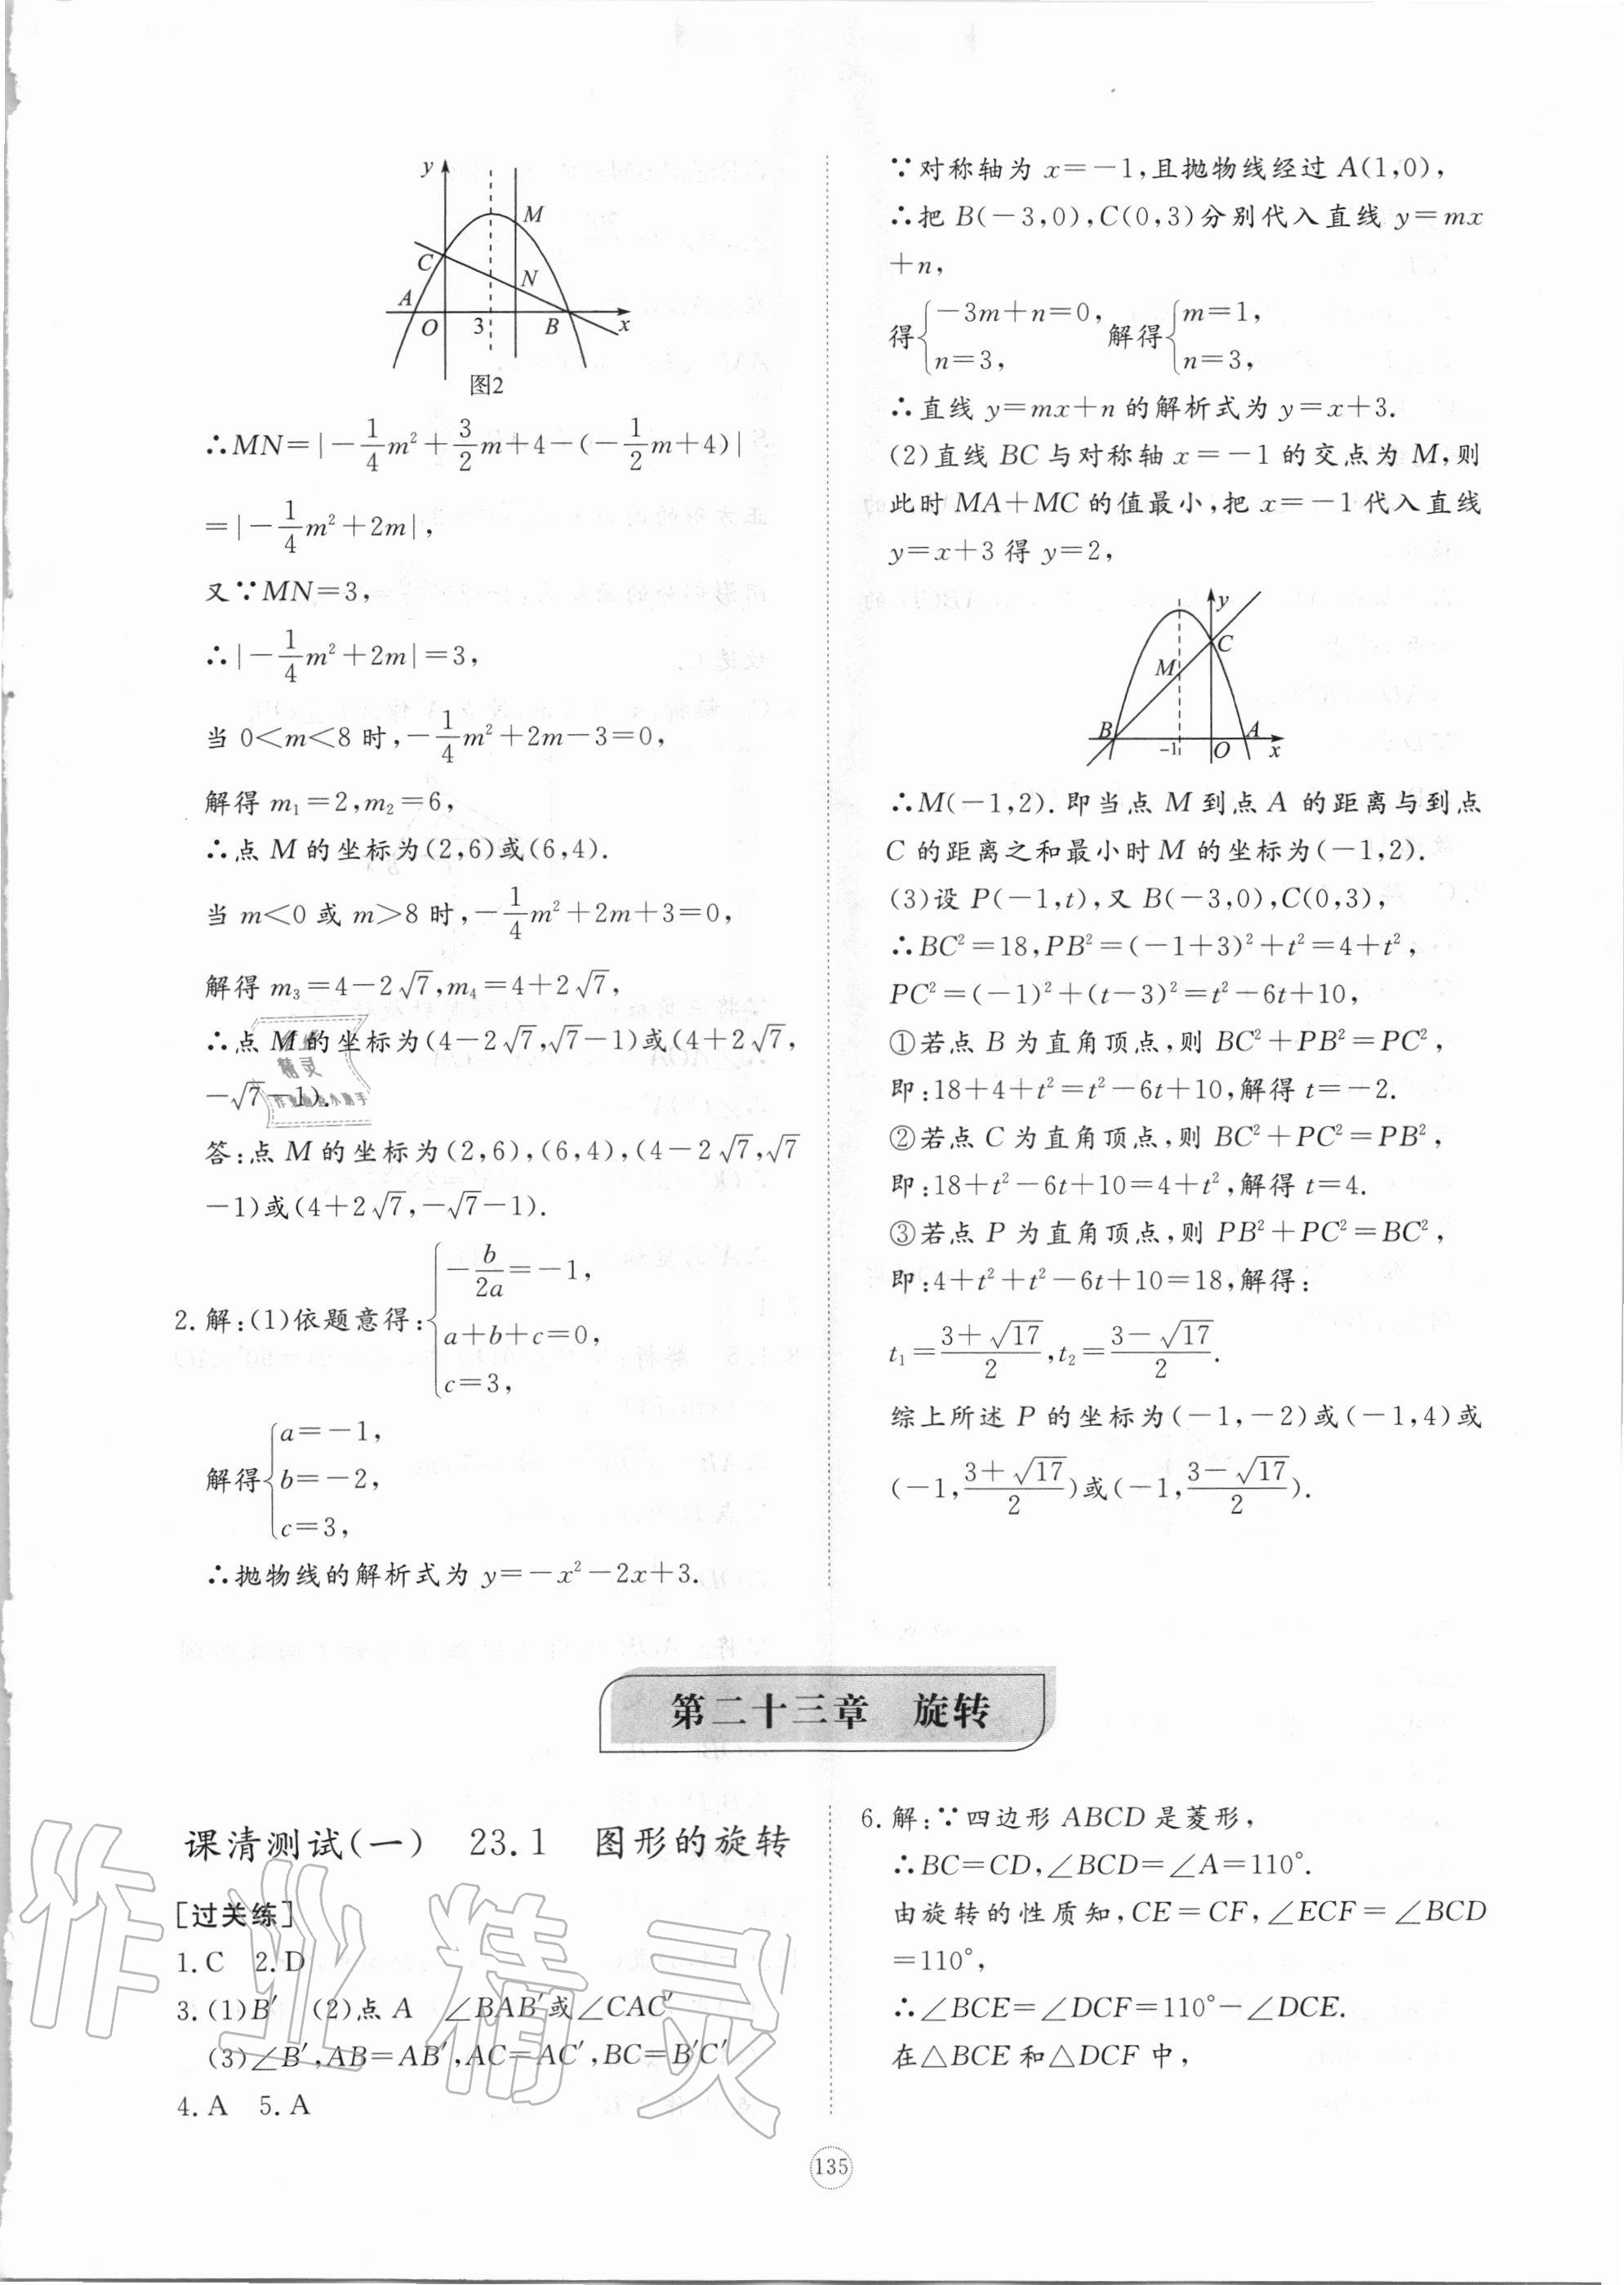 y
M
C
N
A
O
3
B
x
图2
∴MN=|-1/4m²+3/2m+4-(-1/2m+4)|
=|-1/4m²+2m|,
又∵MN=3,
∴|-1/4m²+2m|=3,
当 0<m<8 时,-1/4m²+2m-3=0,
解得 m₁=2,m₂=6,
∴点 M 的坐标为(2,6)或(6,4).
当 m<0 或 m>8 时,-1/4m²+2m+3=0,
解得 m₃=4-2√7,m₄=4+2√7,
∴点 M 的坐标为(4-2√7,√7-1)或(4+2√7,
-√7-1).
答:点 M 的坐标为(2,6),(6,4),(4-2√7,√7
-1)或(4+2√7,-√7-1).
2.解:(1)依题意得:{-b/2a=-1,
a+b+c=0,
c=3,
解得{a=-1,
b=-2,
c=3,
∴抛物线的解析式为 y=-x²-2x+3.
∵对称轴为 x=-1,且抛物线经过 A(1,0),
∴把 B(-3,0),C(0,3)分别代入直线 y=mx
+n,
得{-3m+n=0, n=3, 解得{m=1, n=3,
∴直线 y=mx+n 的解析式为 y=x+3.
(2)直线 BC 与对称轴 x=-1 的交点为 M,则
此时 MA+MC 的值最小,把 x=-1 代入直线
y=x+3 得 y=2,
y
C
M
B
-1
O
A
x
∴M(-1,2).即当点 M 到点 A 的距离与到点
C 的距离之和最小时 M 的坐标为(-1,2).
(3)设 P(-1,t),又 B(-3,0),C(0,3),
∴BC²=18,PB²=(-1+3)²+t²=4+t²,
PC²=(-1)²+(t-3)²=t²-6t+10,
①若点 B 为直角顶点,则 BC²+PB²=PC²,
即:18+4+t²=t²-6t+10,解得 t=-2.
②若点 C 为直角顶点,则 BC²+PC²=PB²,
即:18+t²-6t+10=4+t²,解得 t=4.
③若点 P 为直角顶点,则 PB²+PC²=BC²,
即:4+t²+t²-6t+10=18,解得:
t₁=(3+√17)/2,t₂=(3-√17)/2.
综上所述 P 的坐标为(-1,-2)或(-1,4)或
(-1,(3+√17)/2)或(-1,(3-√17)/2).
第二十三章 旋转
课清测试(一) 23.1 图形的旋转
[过关练]
1.C 2.D
3.(1)B′ (2)点 A ∠BAB′或∠CAC′
(3)∠B′,AB=AB′,AC=AC′,BC=B′C′
4.A 5.A
6.解:∵四边形 ABCD 是菱形,
∴BC=CD,∠BCD=∠A=110°.
由旋转的性质知,CE=CF,∠ECF=∠BCD
=110°,
∴∠BCE=∠DCF=110°-∠DCE.
在△BCE 和△DCF 中,
135
作业精灵